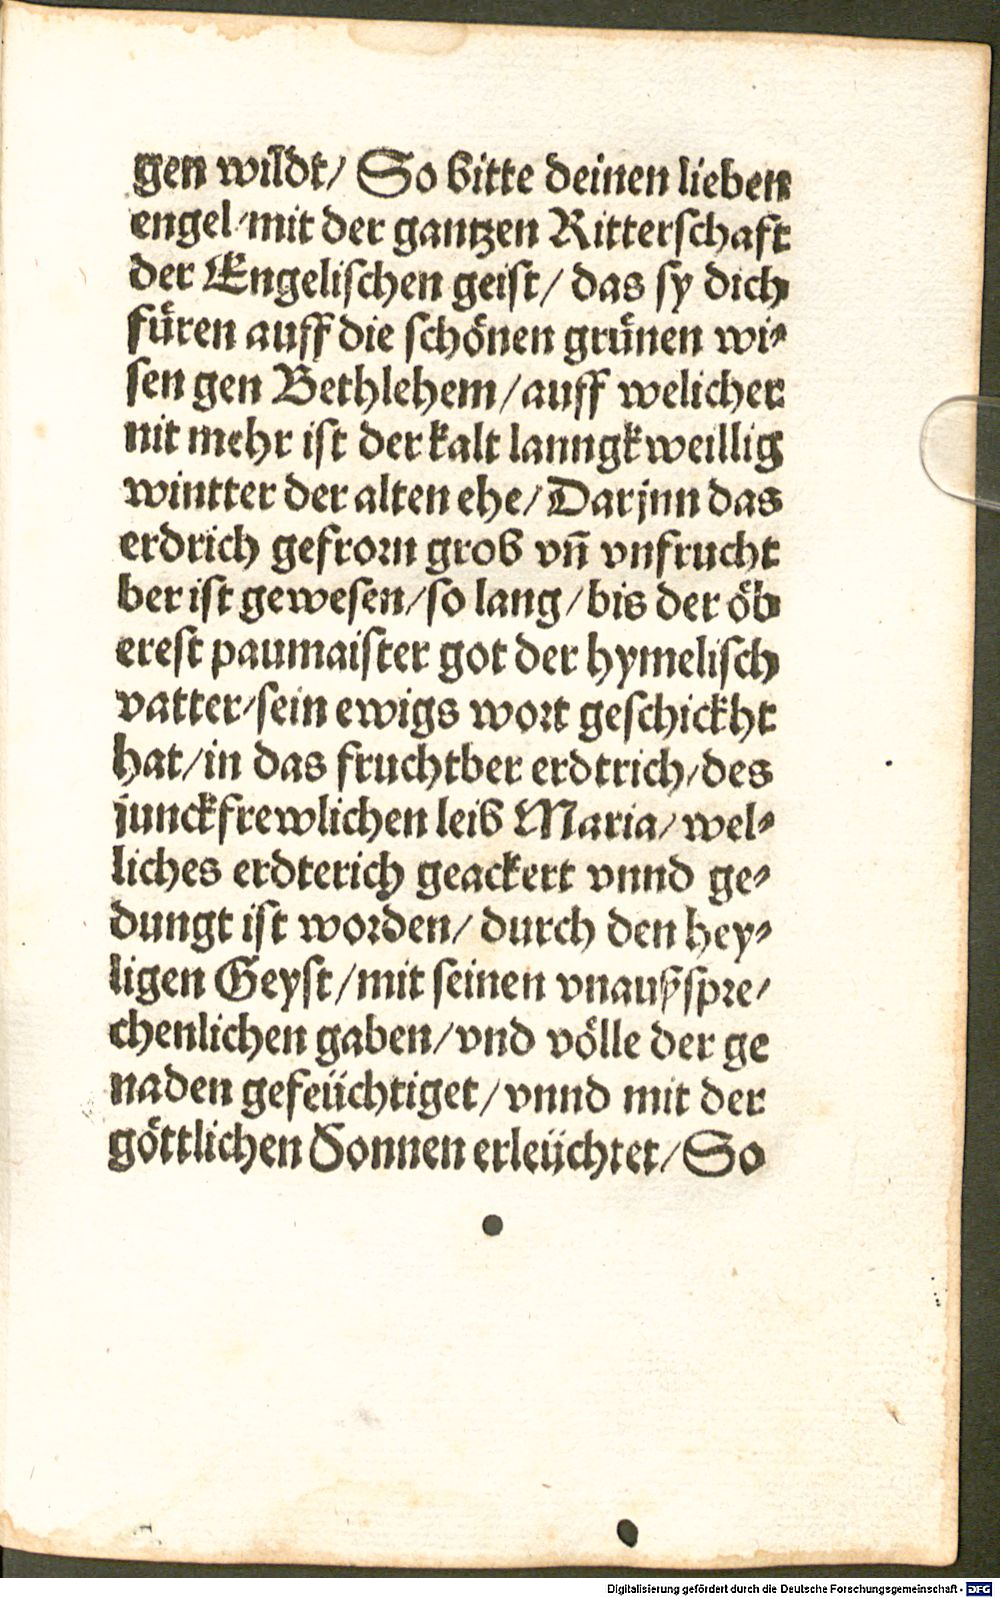 gen wildt/ So bitte deinen lieben
engel/mit der gantzen Ritterschaft
der Engelischen geist/ das sy dich
füren auff die schönen grünen wi⸗
sen gen Bethlehem/auff welicher
nit mehr ist der kalt lanngkweillig
wintter der alten ehe/Darjnn das
erdrich gefrorn grob vñ vnfrucht
ber ist gewesen/so lang/bis der öb
erest paumaister got der hymelisch
vatter/sein ewigs wort geschickht
hat/in das fruchtber erdtrich/des
junckfrewlichen leib Maria/wel⸗
liches erdterich geackert vnnd ge⸗
dungt ist worden/ durch den hey⸗
ligen Geyst/mit seinen vnaußspre/
chenlichen gaben/vnd völle der ge
naden gefeüchtiget/vnnd mit der
göttlichen Sonnen erleüchtet/So
Digitalisierung gefördert durch die Deutsche Forschungsgemeinschaft - DFG